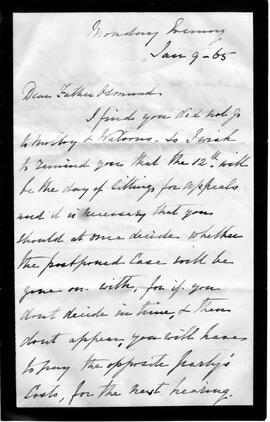 Monday Evening
Jan 9 - 65
Dear Father Osmund
I find you did not go
to & so I wish
to remind you that the 12th will
be the day of Sittings for Appeals
and it is necessary that you
should at once decide whether
the postponed case will be
gone on with, for if you
dont decide in time, & then
dont appear, you will have
to pay the opposite party's
Costs, for the next hearing.